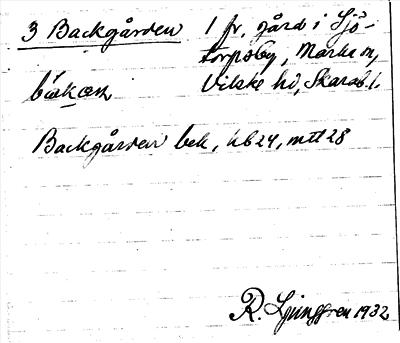 3 Backgården 1 fr. gård i Sjö-
torpsby, Marka sn,
bakæn Vilske hd, Skarab. l.
Backgården bek, hb 24, mtl 28
R. Ljunggren 1932